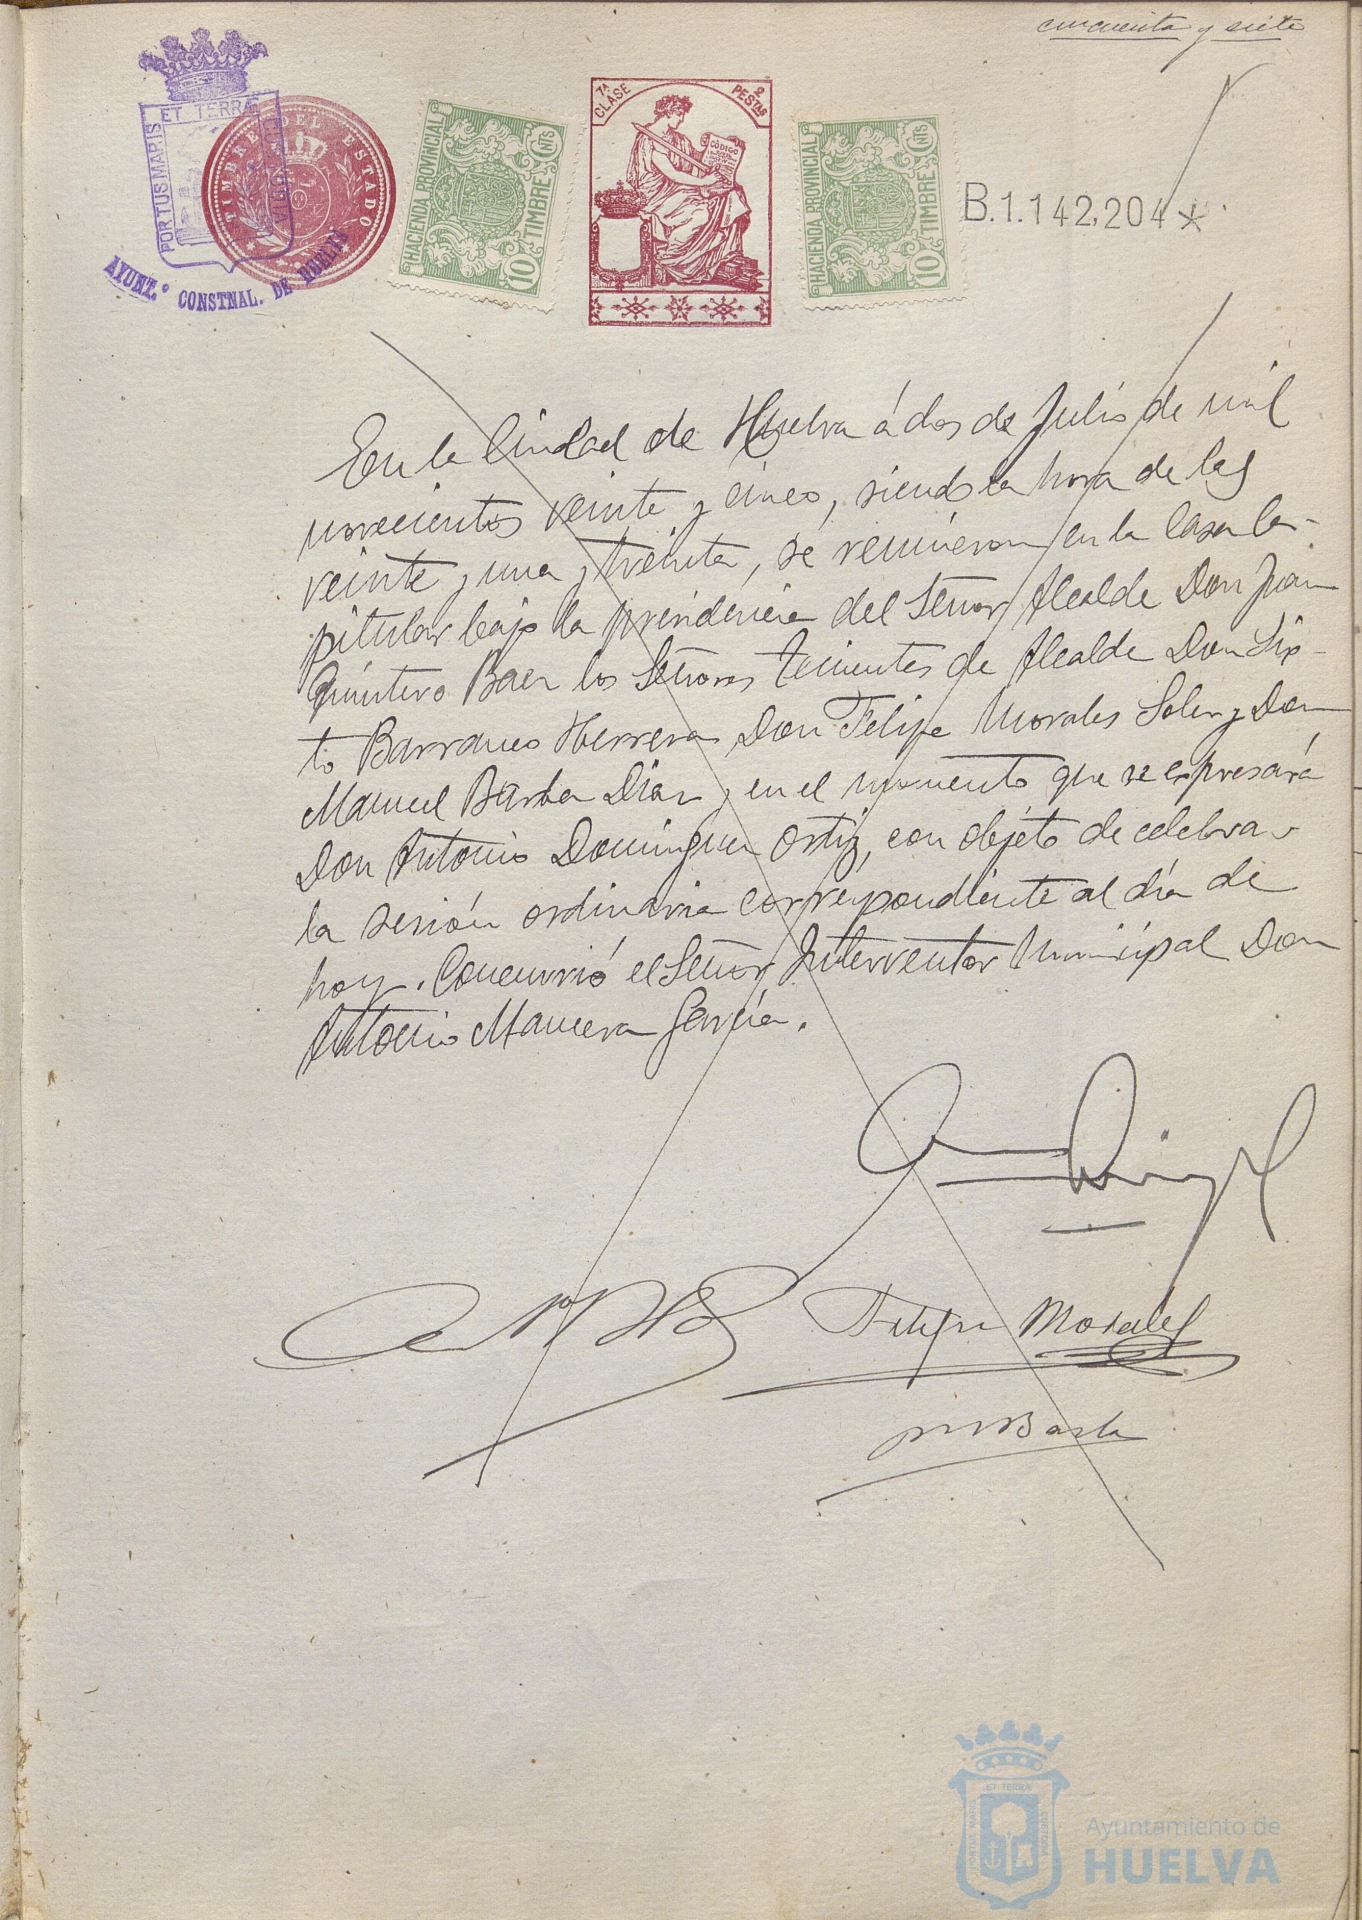 cincuenta y siete
PORTUS MARIS ET TERRAE
AYUNT.º CONSTNAL. DE HUELVA
TIMBRE DEL ESTADO
HACIENDA PROVINCIAL
10 CNTS
TIMBRE
7ª CLASE
2 PESTAS
CÓDIGO
HACIENDA PROVINCIAL
10 CNTS
TIMBRE
B.1.142,204*
En la Ciudad de Huelva á dos de Julio de mil
novecientos veinte y cinco, siendo la hora de las
veinte y una y treinta, se reunieron en la Casa Ca-
pitular bajo la presidencia del Señor Alcalde Don Juan
Quintero Baez los Señores Tenientes de Alcalde Don Six-
to Barranco Herrera, Don Felipe Morales Soler y Don
Manuel Barba Diaz y en el momento que se expresará
Don Antonio Dominguez Ortiz, con objéto de celebrar
la sesión ordinaria correspondiente al día de
hoy. Concurrió el Señor Interventor Municipal Don
Antonio Mancera García.
Felipe Morales
M Barba
PORTUS MARIS ET TERRAE CUSTODIA
Ayuntamiento de
HUELVA